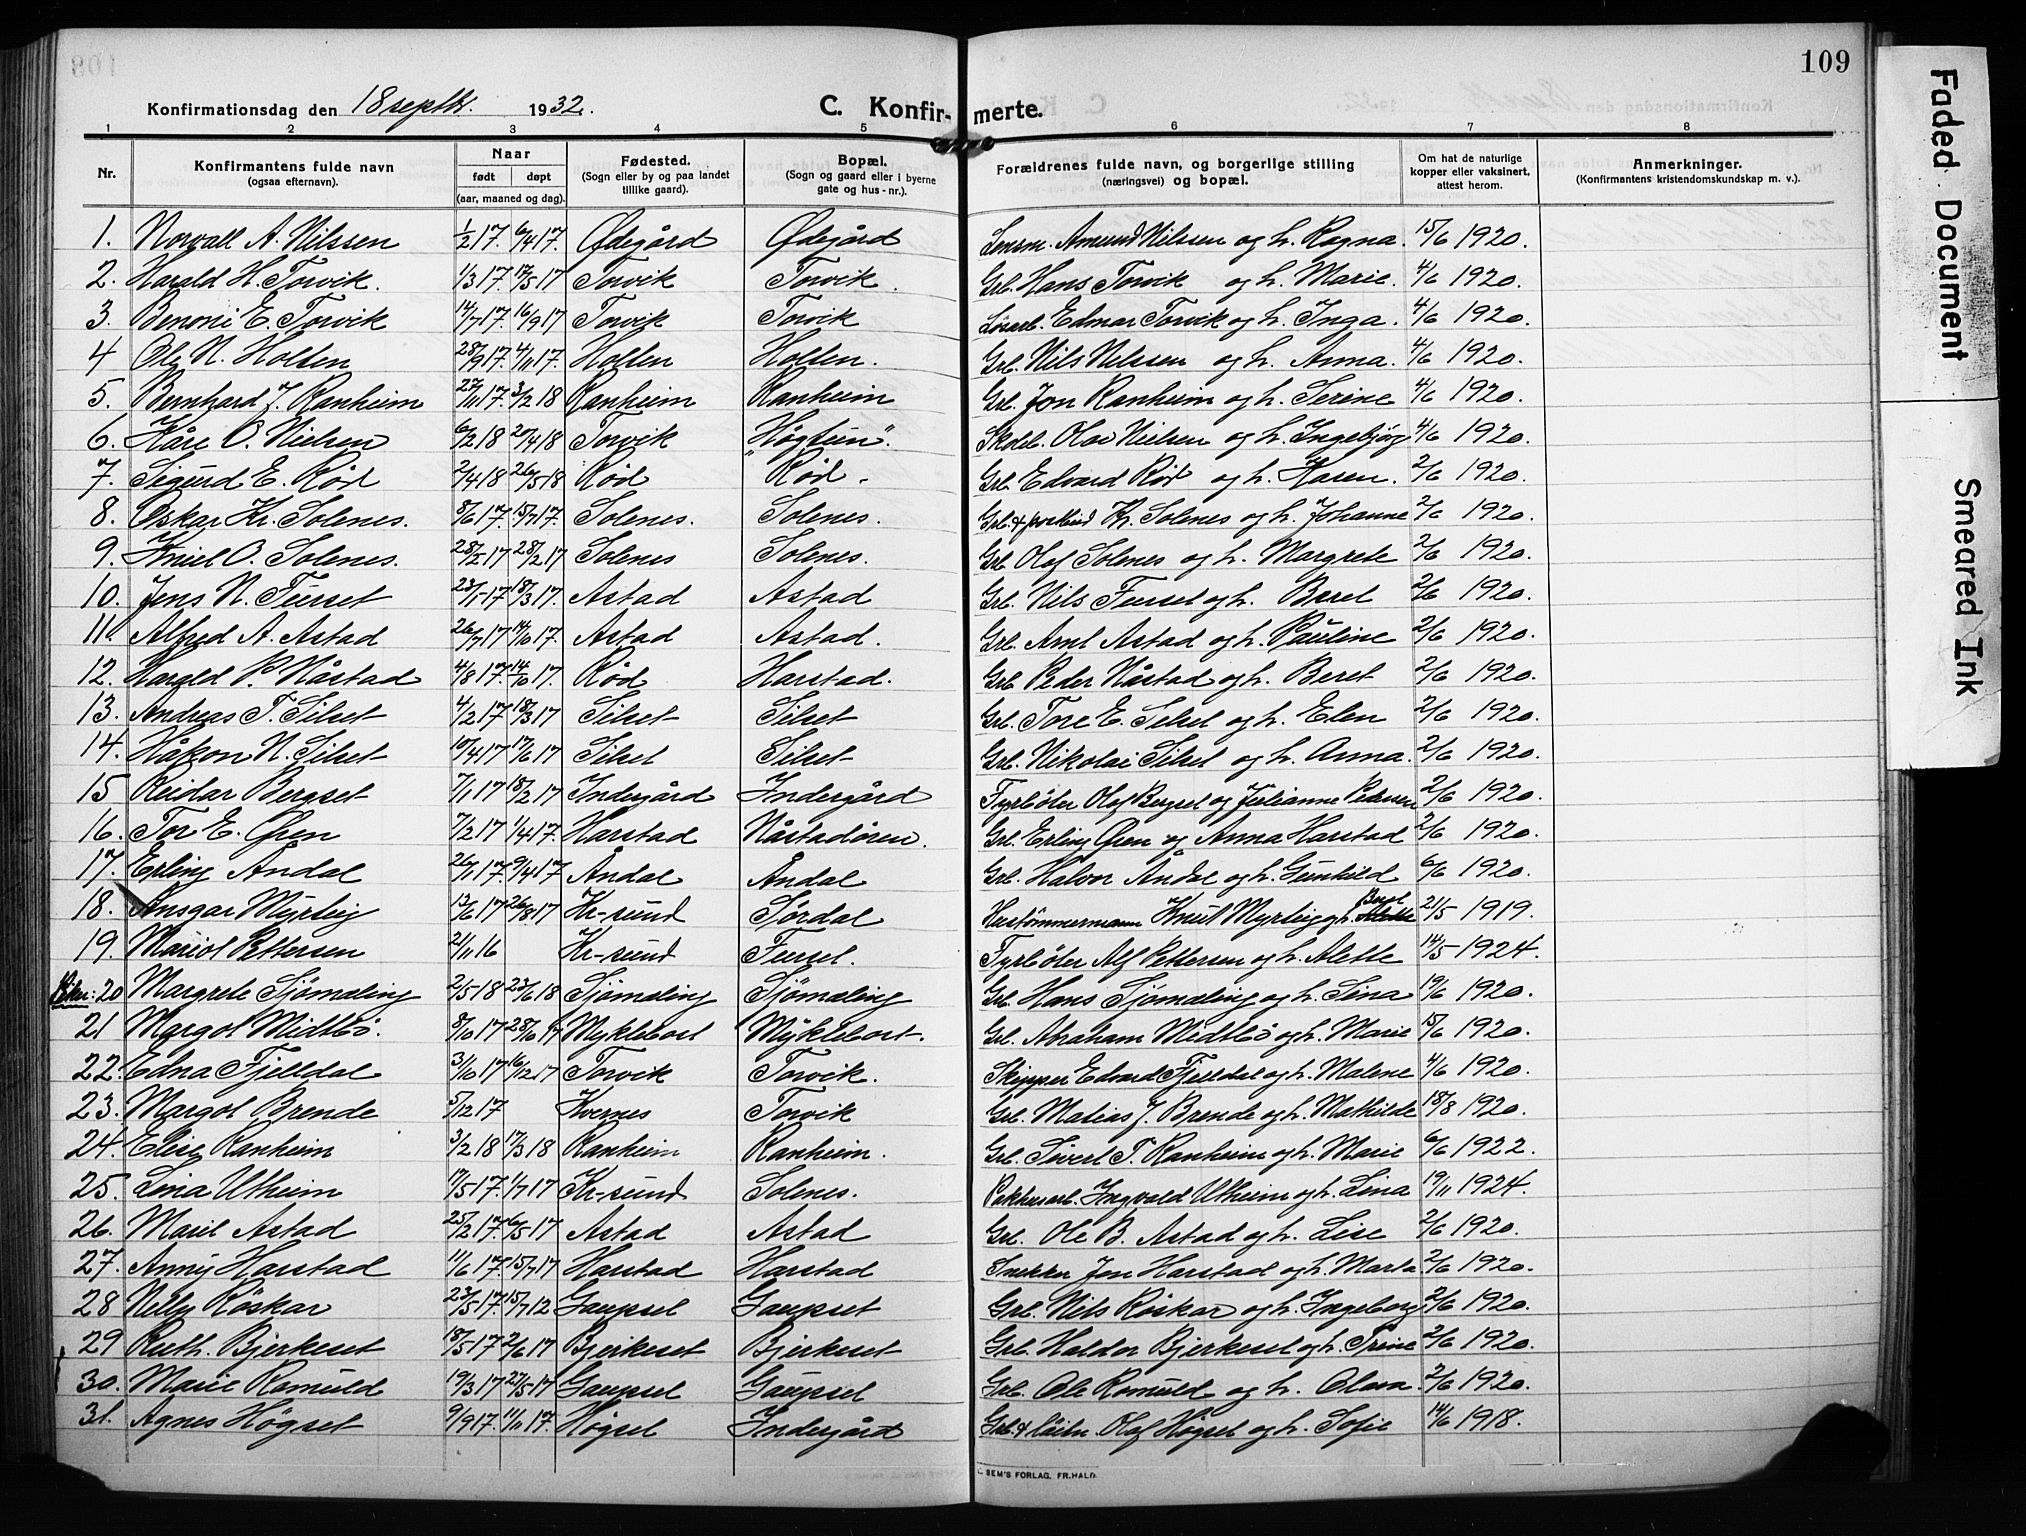 109
Konfirmationsdag den 18 septbr. 1932.
C. Konfir- merte.
1 2 3 4 5 6 7 8
Nr. Konfirmantens fulde navn (ogsaa efternavn). Naar født døpt (aar, maaned og dag). Fødested. (Sogn eller by og paa landet tillike gaard). Bopæl. (Sogn og gaard eller i byerne gate og hus-nr.). Forældrenes fulde navn, og borgerlige stilling (næringsvei) og bopæl. Om hat de naturlige kopper eller vaksinert, attest herom. Anmerkninger. (Konfirmantens kristendomskundskap m. v.).
1. Norvall A. Nilssen 1/2 17. 6/4 17. Ødegård Ødegård Lensm. Amund Nilssen og h. Ragna. 15/6 1920.
2. Harald H. Torvik. 1/3 17. 17/5 17 Torvik Torvik. Grb. Hans Torvik og h. Marie. 4/6 1920.
3. Benoni E. Torvik 14/7 17. 16/9 17 Torvik Torvik Løsarb. Edmar Torvik og h. Inga. 4/6 1920.
4 Ole N. Holten 28/9 17. 4/11 17. Holten Holten. Grb. Nils Nilssen og h. Anna. 4/6 1920.
5. Bernhard J. Ranheim 27/11 17. 3/2 18 Ranheim Ranheim Grb. Jon Ranheim og h. Serine 4/6 1920.
6. Kåre O. Nielsen 6/2 18 21/4 18 Torvik "Høgtun". Skoleb. Olav Nielsen og h. Ingebjørg 4/6 1920.
7. Sigurd E. Rød 2/4 18 26/5 18 Rød Rød. Grb. Edvard Rød og h. Karen. 2/6 1920.
8. Oskar Kr. Solenes. 8/6 17. 15/7 17. Solenes. Solenes. Grb. & postbud Kr. Solenes og h. Johanne 2/6 1920.
9. Knut O. Solenes. 28/2 17 Solenes Solenes. Grb. Olaf Solenes og h. Margrete 2/6 1920.
10. Jens N. Furset 23/1 17 18/3 17. Astad Astad Grb. Nils Furset og h. Beret 2/6 1920.
11. Alfred A. Astad 26/7 17 14/10 17. Astad Astad. Grb. Arnt Astad og h. Pauline 2/6 1920.
12. Harald P. Nåstad 4/8 17. 14/10 17. Rød Harstad. Grb. Peder Nåstad og h. Beret 2/6 1920.
13. Andreas T. Silset 4/2 17 18/3 17 Silset Silset Grb. Tore E. Silset og h. Elen 2/6 1920.
14. Håkon N. Silset 10/4 17 17/6 17 Silset Silset Grb. Nikolai Silset og h. Anna. 2/6 1920.
15 Reidar Bergset 7/1 17 18/2 17 Indergård Indergård Fyrbøter Olaf Bergset og Julianne Pedersen 2/6 1920.
16. Tor E. Øren 7/2 17 1/4 17. Harstad Nåstadøren. Grb. Erling Øren og Anna Harstad 2/6 1920.
17. Erling Åndal 26/1 17. 9/4 17 Åndal Åndal Grb. Halvor Åndal og h. Gunhild 6/6 1920.
18. Ansgar Myrleig 13/6 17 26/8 17 Kr-sund Sørdal Hustømmermann Knut Myrleig og h. Beret 21/5 1919.
19. Mariot Pettersen 21/11 16 Kr-sund Furset. Fyrbøter Alf Pettersen og h. Alette 14/5 1924.
Piker: 20 Margrete Sjømæling 2/5 18 23/6 18 Sjømæling Sjømæling Grb. Hans Sjømæling og h. Sina 19/6 1920.
21 Margot Midtbø. 8/10 17 28/10 17 Myklebost Myklebost. Grb. Abraham Midtbø og h. Marie 15/6 1920.
22. Edna Fjelldal 3/10 17 16/12 17 Torvik Torvik. Skipper Edvard Fjelldal og h. Malene 4/6 1920.
23. Margot Brende 5/12 17 Kvernes Torvik Grb. Matias J. Brende og h. Mathilde 18/8 1920.
24. Elise Ranheim 3/2 18 17/3 18 Ranheim Ranheim. Grb. Sivert T. Ranheim og h. Marie 6/6 1922.
25. Lina Utheim 17/5 17. 1/7 17 Kr-sund Solenes. Pakhusarb. Ingvald Utheim og h. Lina 19/11 1924.
26. Marit Astad 25/2 17. 6/5 17 Astad Astad Grb. Ole B. Astad og h. Lise 2/6 1920.
27. Anny Harstad 11/6 17. 15/7 17 Harstad Harstad Snekker Jon Harstad og h. Marta 2/6 1920.
28 Nelly Røskar 23/5 17. 15/7 12 Gaupset Gaupset Grb. Nils Røskar og h. Ingeborg. 2/6 1920.
29 Ruth. Bjerkeset 18/5 17 2/6 17 Bjerkeset Bjerkeset Grb. Haldor Bjerkeset og h. Trine 2/6 1920.
30. Marie Romuld 19/3 17 27/5 17 Gaupset Gaupset Grb. Ole Romuld og h. Olava. 2/6 1920.
31. Agnes Høgset 9/9 17. 11/11 17. Høgset Indergård Grb. & Olaf Høgset og h. Sofie 14/6 1918.
SEM'S FORLAG, FR.HALD
Faded Document
Smeared Ink